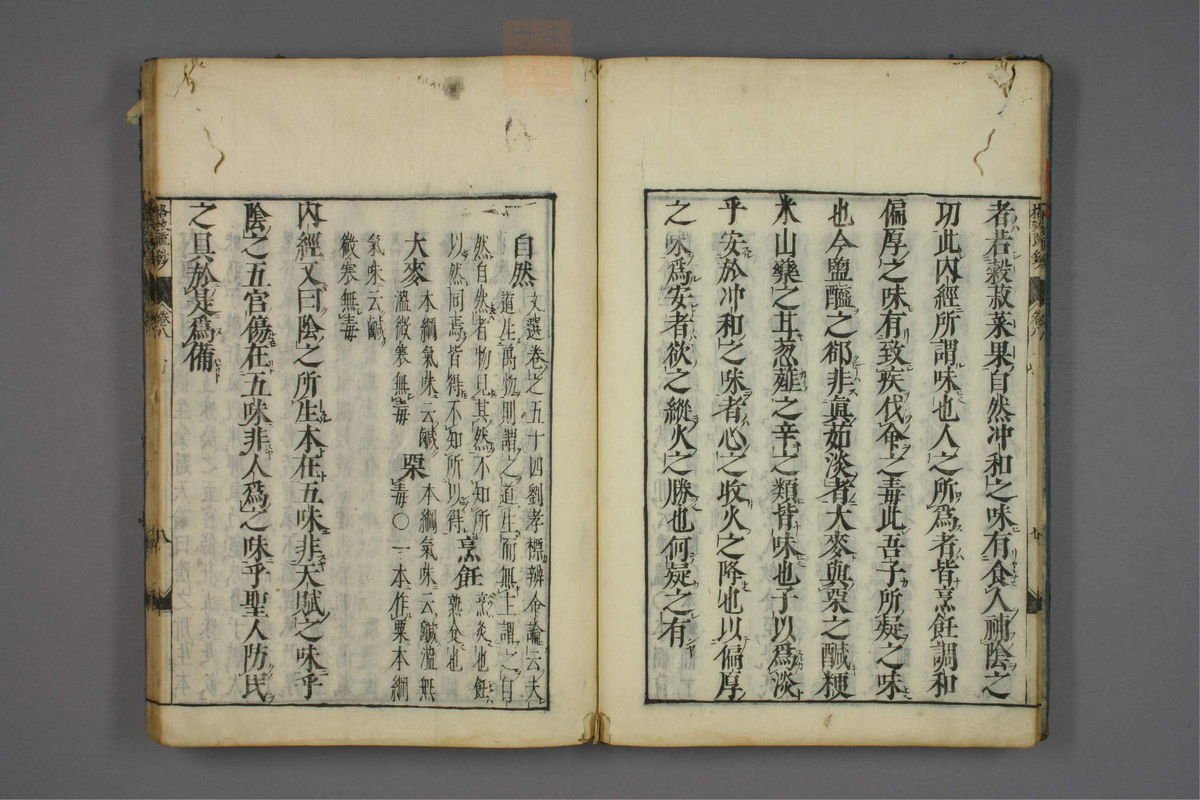 者若穀菽菜果自然冲和之味有食人補陰之
功此内經所謂味也人之所爲者皆烹飪調和
偏厚之味有致疾伐命之毒此吾子所疑之味
也今鹽醯之却非真茹淡者大麥與栗之醎粳
米山藥之甘葱薤之辛之類皆味也子以爲淡
乎安於冲和之味者心之收火之降也以偏厚
之味爲安者欲之縱火之勝也何疑之有
自然 文選卷之五十四劉孝標辨命論云夫
道生萬物則謂之道生而無主謂之自
然自然者物見其然不知所
以然同焉皆得不知所以得 烹飪 烹炙也飪
熟食也
大麥 本綱氣味云鹹
溫微寒無毒 栗 本綱氣味云鹹溫無
毒○一本作粟本綱
氣味云鹹
微寒無毒
内經又曰陰之所生本在五味非天賦之味乎
陰之五官傷在五味非人爲之味乎聖人防民
之具於是爲備